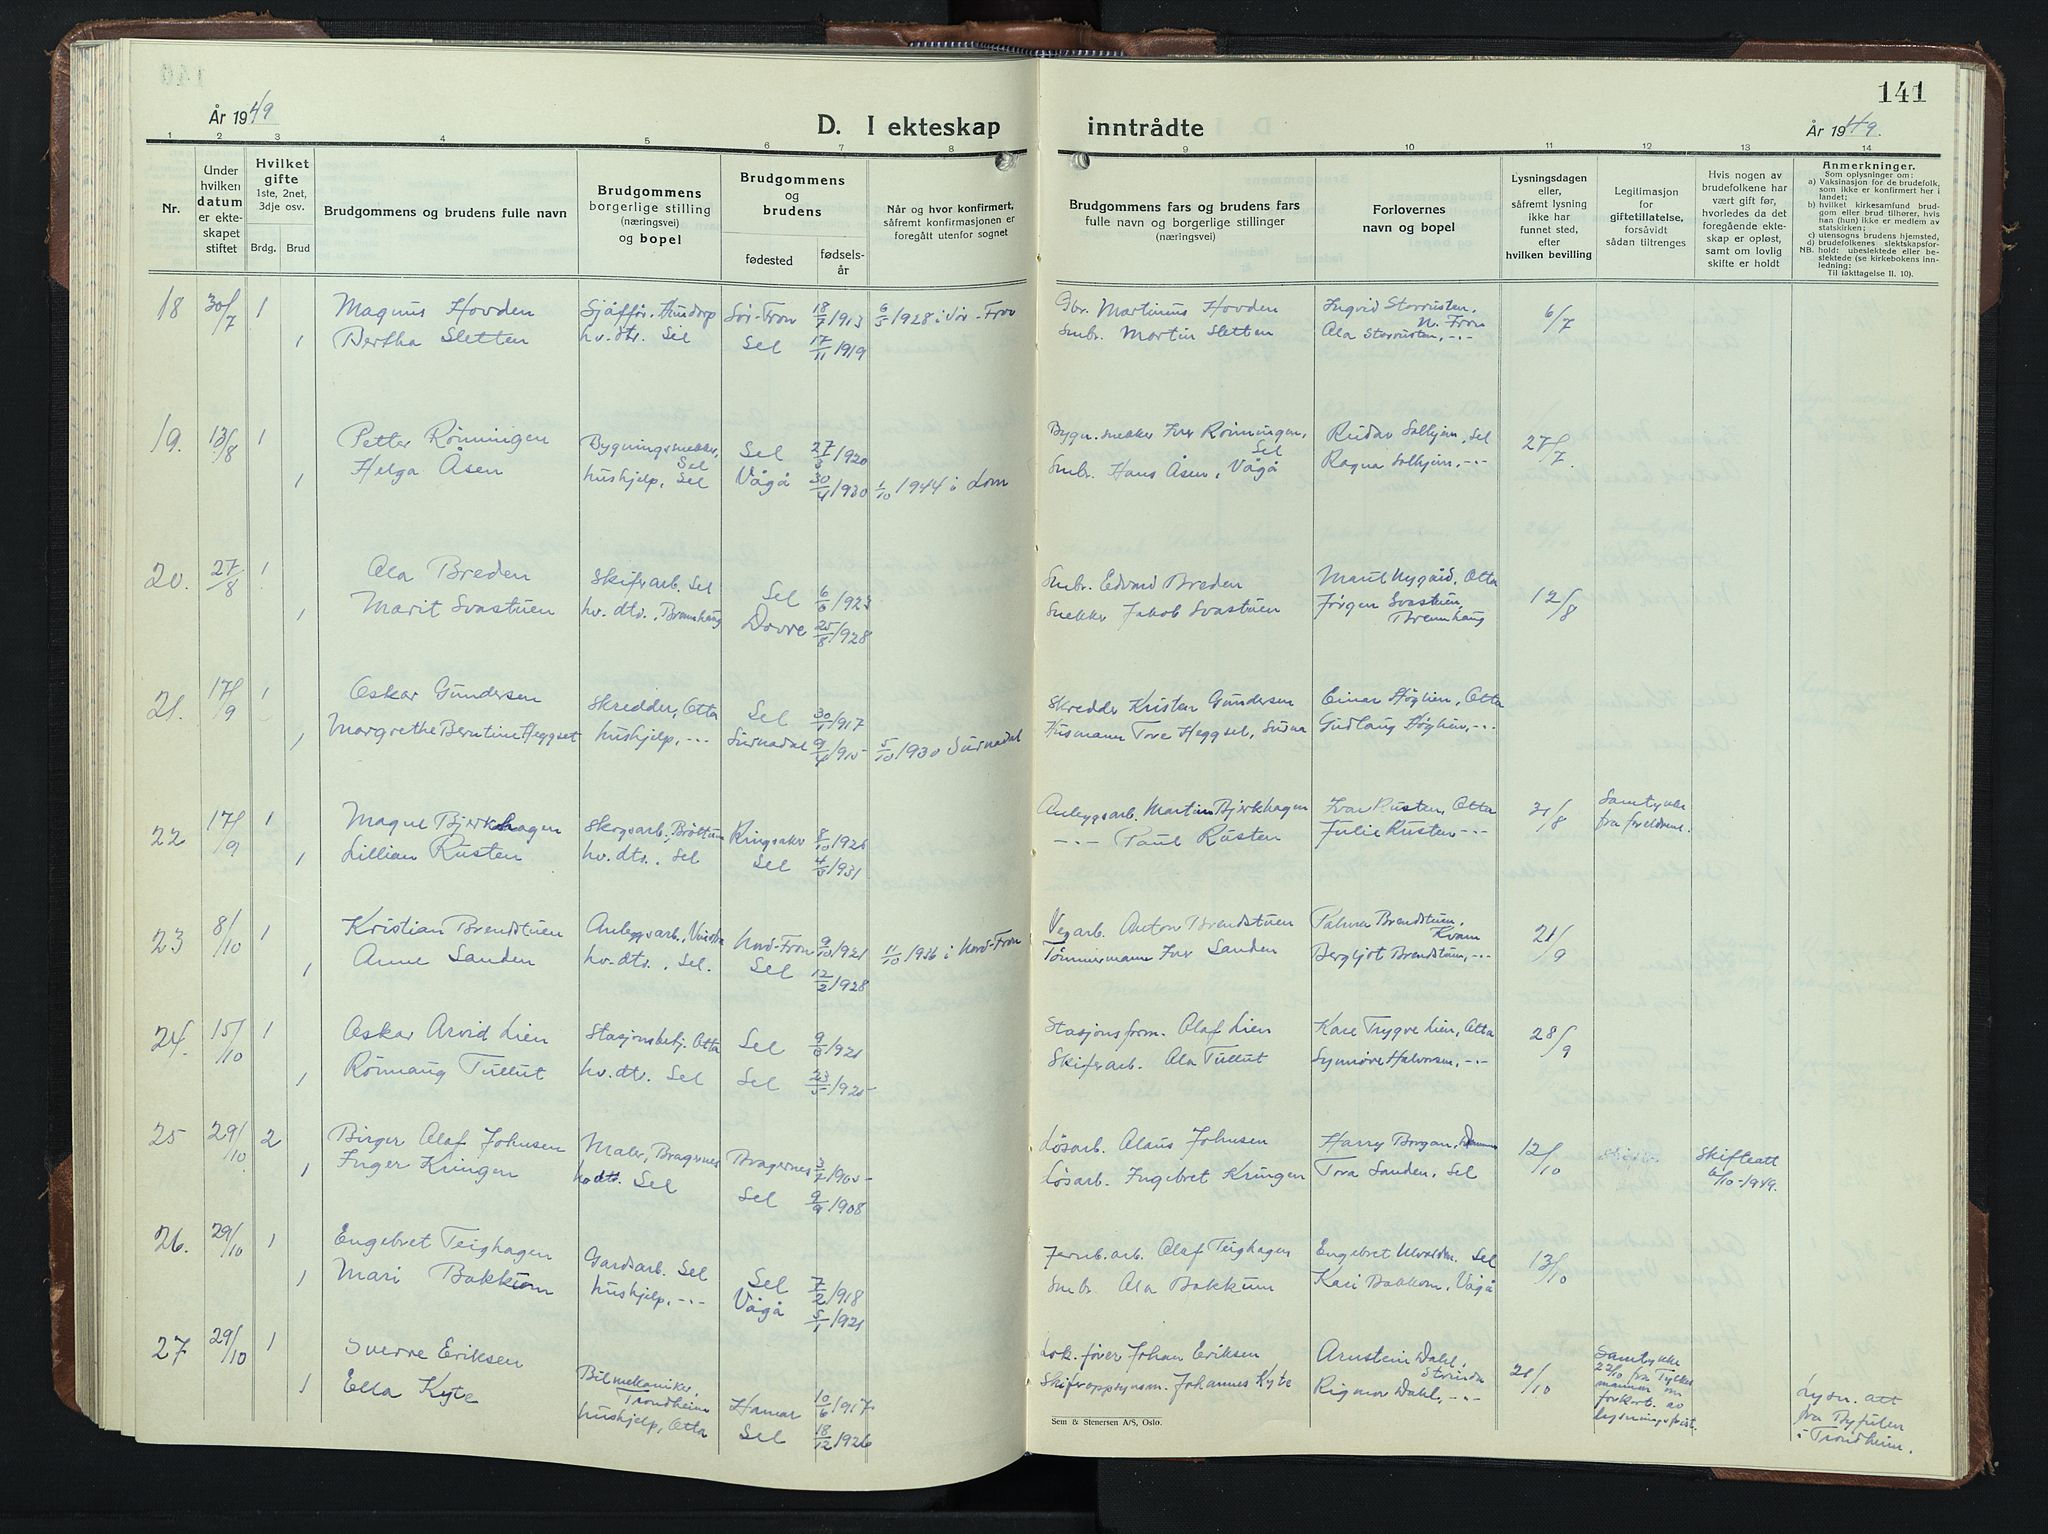 141
År 1949
D. I ekteskap inntrådte
År 1949.
1 2 3 4 5 6 7 8 9 10 11 12 13 14
Nr.
Under hvilken datum er ekteskapet stiftet
Hvilket gifte 1ste, 2net, 3dje osv. Brdg. Brud
Brudgommens og brudens fulle navn
Brudgommens borgerlige stilling (næringsvei) og bopel
Brudgommens og brudens fødested fødselsår
Når og hvor konfirmert, såfremt konfirmasjonen er foregått utenfor sognet
Brudgommens fars og brudens fars fulle navn og borgerlige stillinger (næringsvei)
Forlovernes navn og bopel
Lysningsdagen eller, såfremt lysning ikke har funnet sted, efter hvilken bevilling
Legitimasjon for giftetillatelse, forsåvidt sådan tiltrenges
Hvis nogen av brudefolkene har vært gift før, hvorledes da det foregående ekteskap er opløst, samt om lovlig skifte er holdt
Anmerkninger.
Som oplysninger om:
a) Vaksinasjon for de brudefolk, som ikke er konfirmert her i landet;
b) hvilket kirkesamfund brudgom eller brud tilhører, hvis han (hun) ikke er medlem av statskirken;
c) utensogns brudens hjemsted,
d) brudefolkenes slektskapsforhold: ubeslektede eller beslektede (se kirkebokens innledning:
NB.
Til iakttagelse II. 10).
18 30/7 1 Magnus Hovden Sjåffør. Hundorp Sør-Fron 18/7 1913 6/5 1928 i Sør-Fron Gbr. Martinus Hovden Ingvid Storrusten, N. Fron 6/7
1 Bertha Sletten hv. dtr. Sel Sel 17/11 1919 Smbr. Martin Sletten Ola Storrusten, -"-
19. 13/8 1 Petter Rønningen Bygningssnekker, Sel Sel 27/3 1920 Bygn. snekker Iver Rønningen, Sel Rudav Solhjem, Sel 27/7.
1 Helga Åsen hushjelp, Sel Vågå 30/4 1930 1/10 1944 i Lom Smbr. Hans Åsen, Vågå Ragna Solhjem, -"-
20. 27/8 1 Ola Breden Skiferarb. Sel Sel 6/6 1923 Smbr. Edvard Breden Marit Nygård, Otta 12/8
1 Marit Svastuen hv. dtr., Brennhaug Dovre 25/8 1928 Snekker Jakob Svastuen Jørgen Svastuen, Brennhaug
21. 17/9 1 Oskar Gundersen Skredder, Otta Sel 30/1 1917 Skredder Kristen Gundersen Einar Høghen, Otta
1 Margrethe Berntine Heggset hushjelp, -"- Surnadal 9/4 1915 5/10 1930 Surnadal Husmann Tore Heggset, Gudlaug Høghen, -"-
22 17/9 1 Magne Bjerkhagen Skogsarb., Brøttum Ringsaker 8/10 1926 Anleggsarb. Martin Bjerkhagen Ivar Rusten, Otta 31/8 Samtykke fra foreldrene.
1 Lillian Rusten hv. dtr., Sel Sel 4/5 1931 -"- Paul Rusten Julie Rusten -"-
23 8/10 1 Kristian Brendstuen Anleggsarb., Vinstra Nord-Fron 9/10 1921 11/10 1936 i Nord-Fron Vegarb. Anton Brendstuen Palma Brendstuen, Kvam 21/9
1 Anne Sanden hv. dtr., Sel. Sel 12/2 1928 Tømmermann Iver Sanden Bergljot Brendstuen, -"-
24. 15/10 1 Oskar Arvid Lien Stasjonsbetj. Otta Sel 9/8 1921 Stasjonsform. Olaf Lien Kåre Trygve Lien, Otta 28/9
1 Rønnaug Tullut hv. dtr. Sel Sel 23/5 1925 Skiferarb. Ola Tullut Synnøve Halvorsen, -"-
25 29/10. 2 Birger Olaf Johnsen Maler, Bragernes Bragernes 3/7 1905 Løsarb. Olaus Johnsen Harry Borgan, 12/10 Skifteatt 6/10-1949.
1 Inger Kringen hv. dtr. Sel Sel 9/9 1908 Løsarb. Ingebret Kringen Tora Sanden, Sel
26. 29/10 1 Engebret Teighagen Gardsarb. Sel Sel 7/2 1918 Jernb. arb. Olaf Teighagen Engebret Ulvolden. Sel 13/10
1 Mari Bakkum hushjelp, -"- Vågå 5/1 1921 Smbr. Ola Bakkum Kari Bakkom, Vågå
27 29/10 1 Sverre Eriksen Bilmekaniker, Trondheim Hamar 10/6 1917 Lok. fører Johan Eriksen Arnstein Dahl, Strinda 21/10 Samtykke 22/10 fra Fylkesmannen om forkort. av lysningsfrist. Lysn. att fra Byfuten i Trondheim.
1 Ella Kyte hushjelp, Otta Sel 18/12 1926 Skiferoppsynsm. Johannes Kyte Rigmor Dahl, -"-
Sem & Stenersen A/S, Oslo.